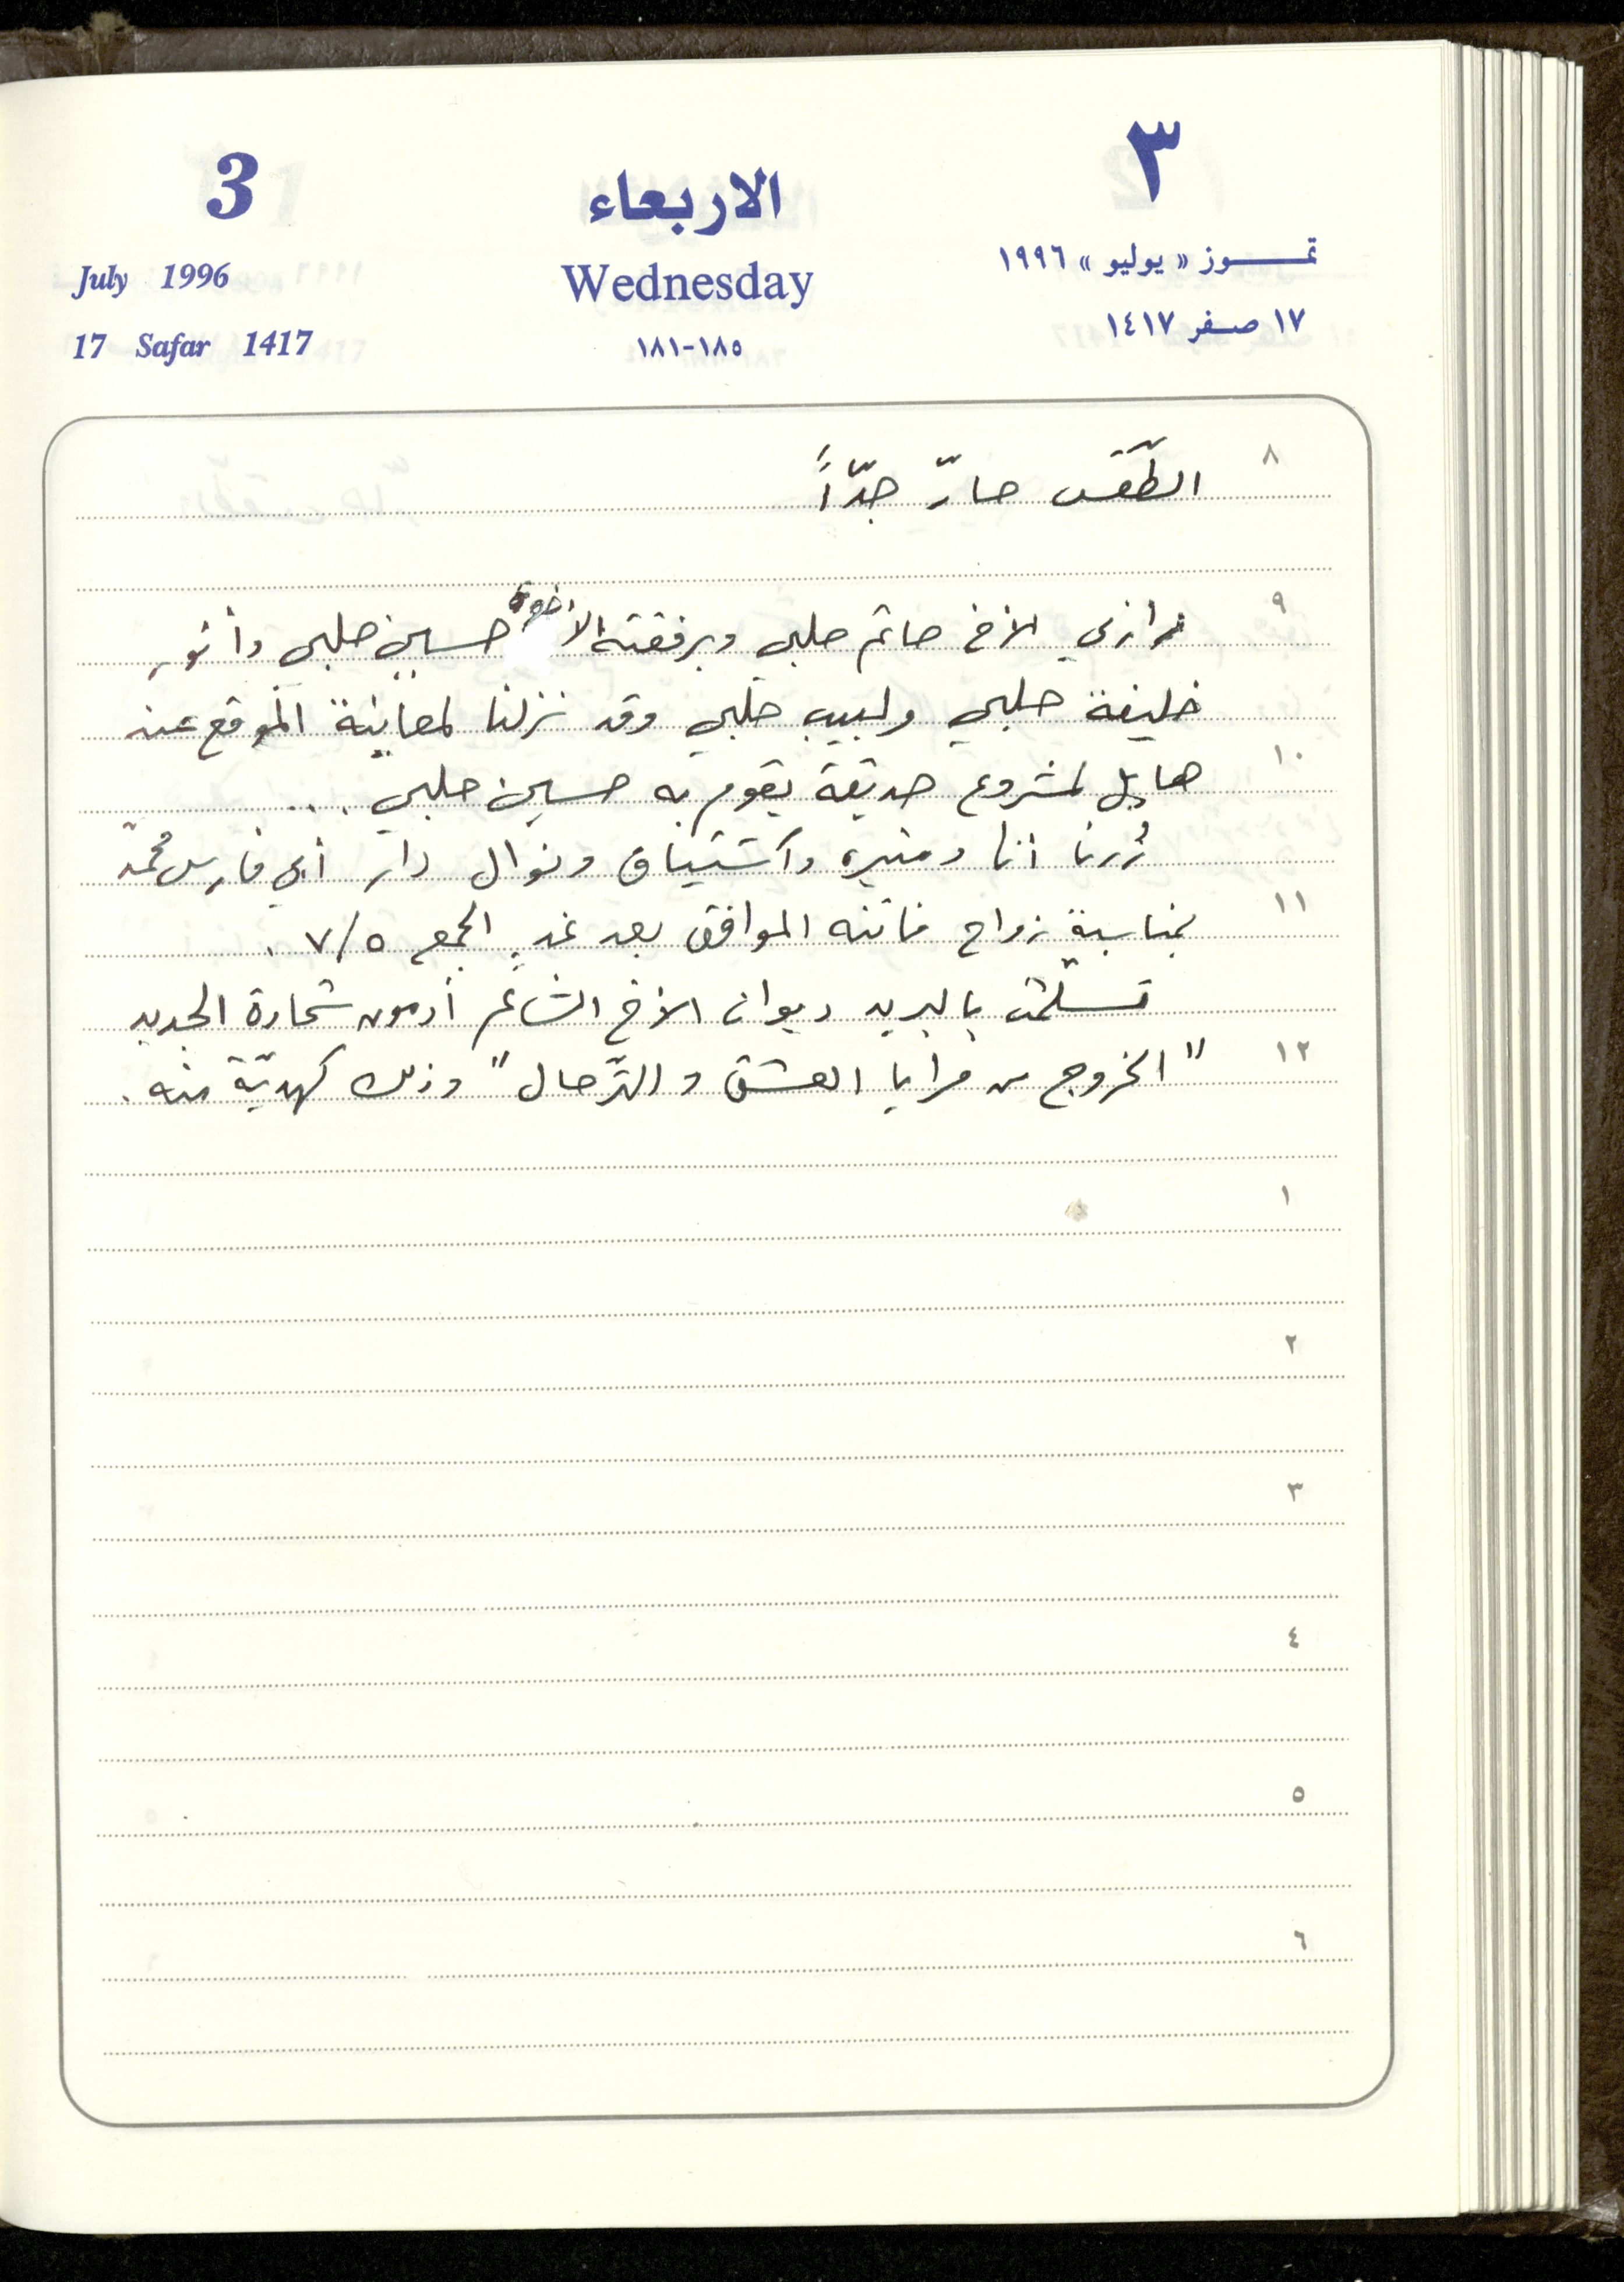 3
الاربعاء
٣
July 1996
Wednesday
تمـــوز « يوليو » ١٩٩٦
17 Safar 1417
١٨٥-١٨١
١٧ صفر ١٤١٧
٨
الطّقس حارّ جدّاً
٩
زارني الأخ حاتم حلبي وبرفقته الاخوة حسين حلبي وأنور
خليفة حلبي ولبيب حلبي وقد نزلنا لمعاينة الموقع عند
١٠
هايل لمشروع حديقة يقوم به حسين حلبي ...
زُرنا أنا ومنيره واشتياق ونوال دار أبي فارس محمّد
١١
بمناسبة زواج فاتنه الموافق بعد غدٍ الجمع ٧/٥ .
تسلّمت بالبريد ديوان الأخ الشاعر أدمون شحادة الجديد
١٢
"الخروج من مرايا العشق والترّحال" وذلك كهديّة منه .
١
٢
٣
٤
٥
٦